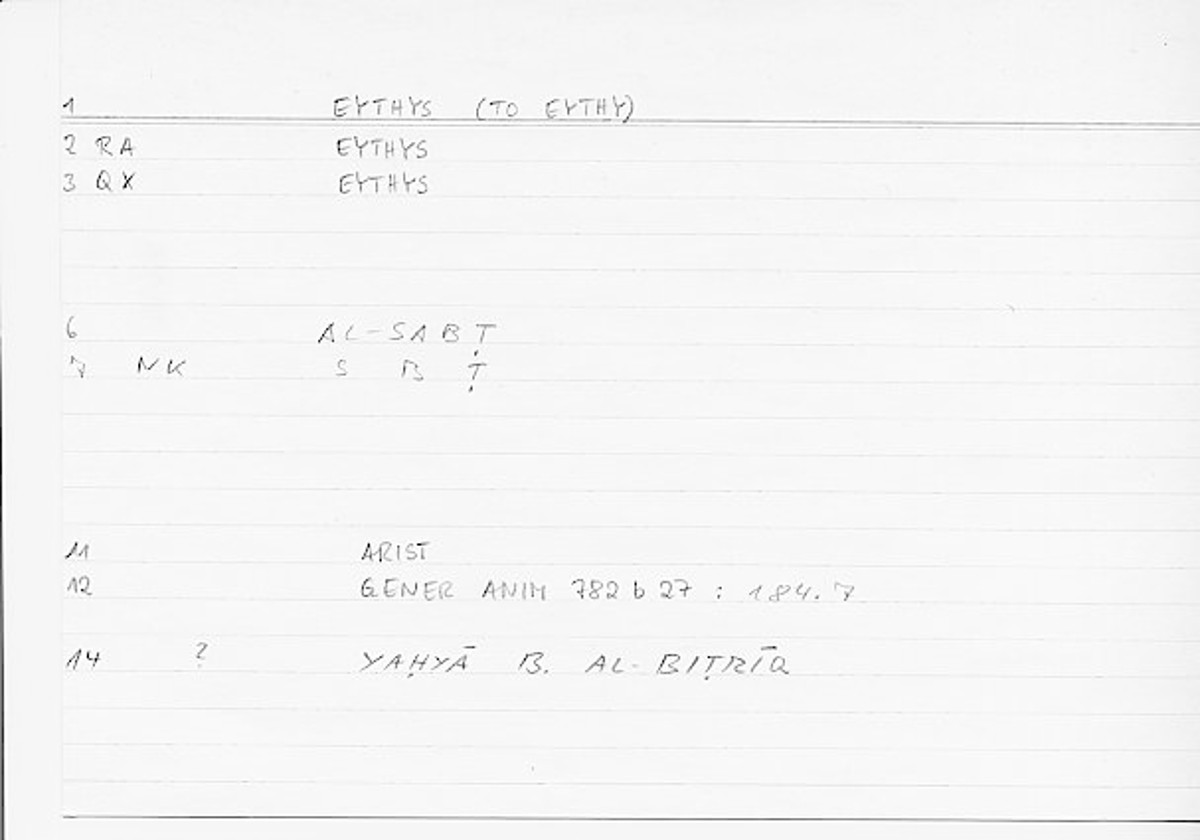 1 EYTHYS (TO EYTHY)
2 RA EYTHYS
3 QX EYTHYS
6 AL-SABṬ
7 NK S B Ṭ
11 ARIST
12 GENER ANIM 782 b 27 : 184.7
14 ? YAḤYĀ B. AL-BIṬRĪQ